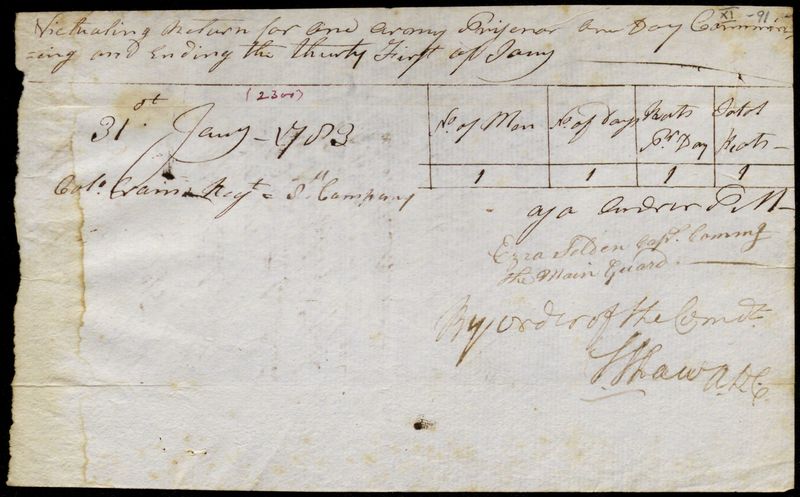 XI -91
Victualing Return for one army Prisenor one Day Commenc
=ing and Ending the thirty First of Jany
(2300)
31st Jany - 1783
No. of Men No. of Days Reats Pr Day Total Reats -
1 1 1 1
Colo. Crains Regt = 8th Company
Andrew
Ezra Selden Capt. Comming
the Main Guard.
By order of the Comdt.
S Shaw A.D.C.